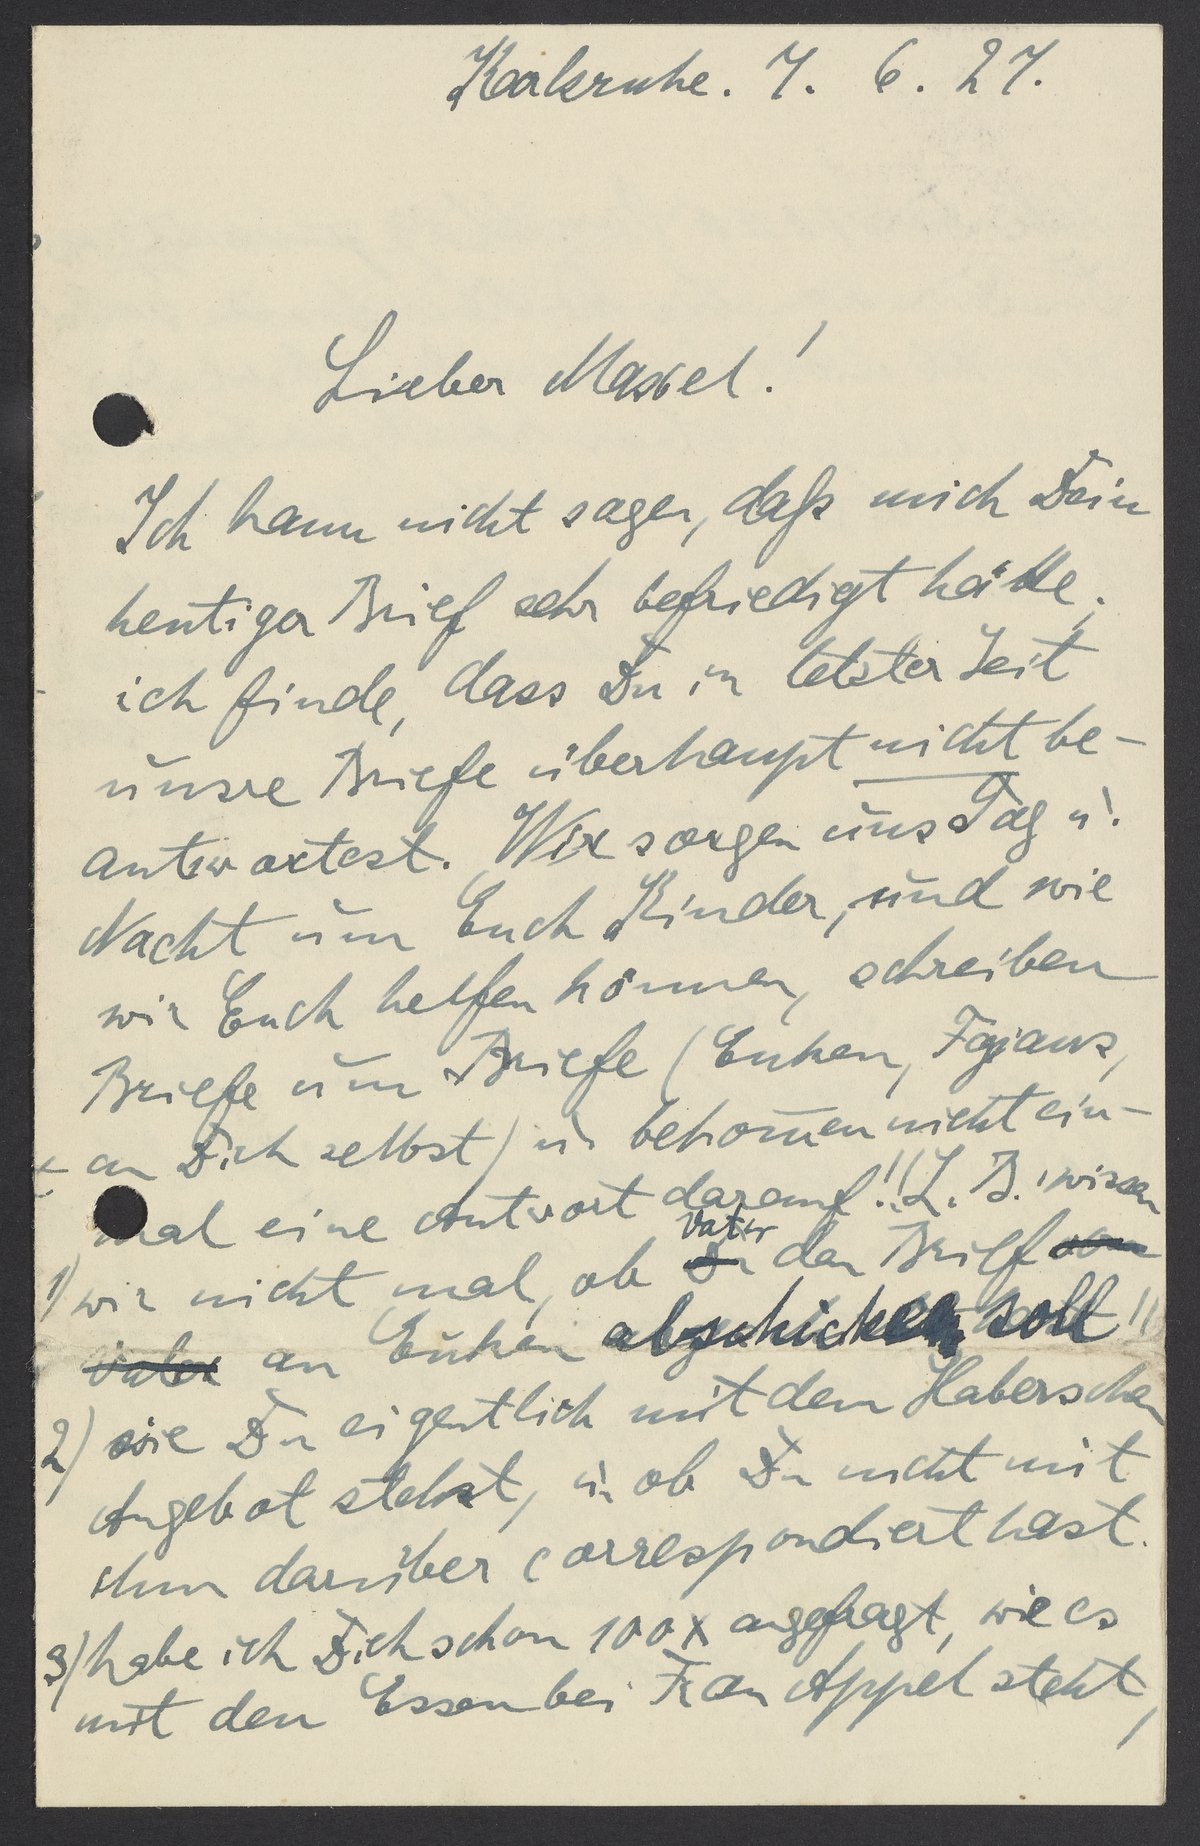 Karlsruhe. 7. 6. 27.
Lieber Maxel!
Ich kann nicht sagen, daß mich Dein
heutiger Brief sehr befriedigt hätte;
ich finde, dass Du in letzter Zeit
unsre Briefe überhaupt nicht be-
antwortest. Wir sorgen uns Tag u.
Nacht um Euch Kinder, und wie
wir Euch helfen können, schreiben
Briefe um Briefe (Euken, Fajans,
an Dich selbst) u. bekom̄en nicht ein-
mal eine Antwort darauf!! Z. B. wissen
1) wir nicht mal, ob Vater den Brief
an Euken abschicken soll!!
2) wie Du eigentlich mit dem Haberschen
Angebot stehst, u. ob Du nicht mit
ihm darüber correspondiert hast.
3) habe ich Dich schon 100 x angefragt, wie es
mit dem Essen bei Frau Appel steht,